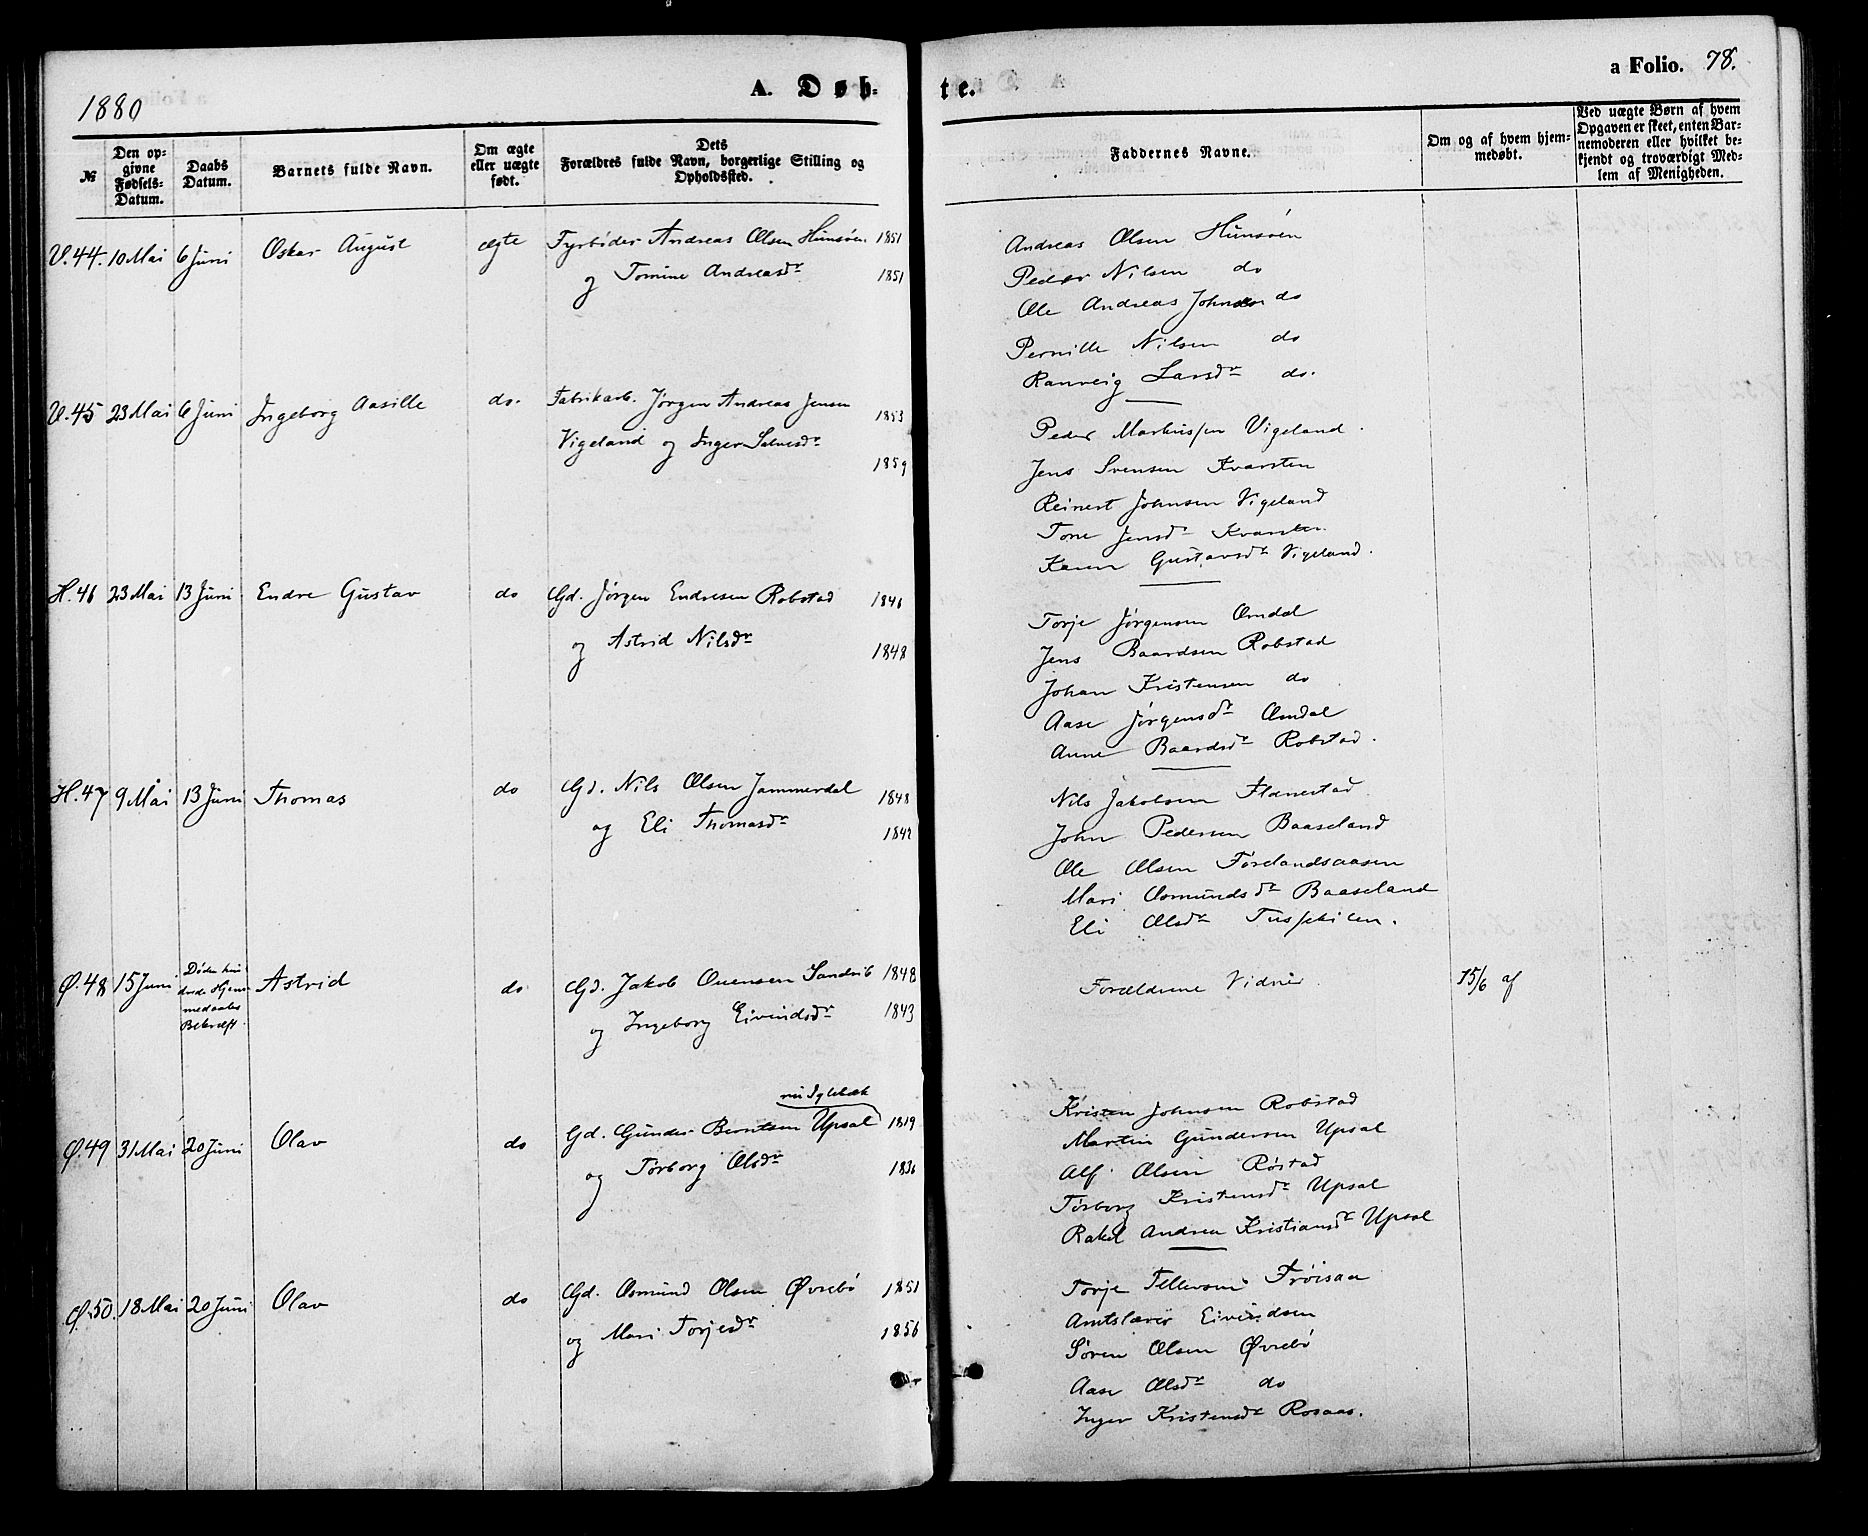 1880
A. Døb-
te.
a Folio. 78.
№
Den op-
givne
Fødsels-
Datum.
Daabs
Datum.
Barnets fulde Navn.
Om ægte
eller uægte
født.
Dets
Forældres fulde Navn, borgerlige Stilling og
Opholdssted.
Faddernes Navne.
Om og af hvem hjem-
medøbt.
Ved uægte Børn af hvem
Opgaven er skeet, enten Bar-
nemoderen eller hvilket be-
kjendt og troværdigt Med-
lem af Menigheden.
V.44. 10 Mai 6 Juni Oskar August ægte Fyrbøder Andreas Olsen Hunsøen 1851
og Tomine Andreasdr 1851
Andreas Olsen Hunsøen
Peder Nilsen do
Ole Andreas Johnsen do
Pernille Nilsen do
Ranveig Larsdr do.
V.45 23 Mai 6 Juni Ingeborg Aasille do. Fabrikarb. Jørgen Andreas Jensen 1853
Vigeland og Inger Salvesdr 1859
Peder Markussen Vigeland.
Jens Svensen Kvarsten
Reinert Johnsen Vigeland
Tone Jensdr Kvarsten
Karen Gustavsdr Vigeland.
H.46 23 Mai 13 Juni Endre Gustav do Gd. Jørgen Endresen Robstad 1846
og Astrid Nilsdr 1848
Torje Jørgensen Omdal
Jens Baardsen Robstad
Johan Kristensen do
Aase Jørgensdr Omdal
Anne Baardsdr Robstad.
H.47 9 Mai 13 Juni Thomas do Gd. Nils Olsen Jammerdal 1848
og Eli Thomasdr
Nils Jakobsen
John Pedersen Baaseland
Ole Olsen Førelandsaasen
Mari Osmundsdr Baaseland
Eli Olsdr
Ø.48 15 Juni Astrid do Gd. Jakob Ouensen Sandrib 1848
Døden hin-
drede Hjem-
medaabs
Bekræft.
og Ingeborg Eivindsdr 1843
Forældrene Vidner
15/6 af
Ø.49 31 Mai 20 Juni Olav do Gd. Gunder Berntsen Upsal 1819
og Torborg Olsdr 1836
Kristen Johnsen Robstad
Martin Gundersen Upsal
Alf Olsen Røstad
Torborg Kristensdr Upsal
Rakel Andrea Kristiansdr Upsal
Ø.50. 18 Mai 20 Juni Olav do Gd. Osmund Olsen Øvrebø 1851
og Mari Torjesdr 1856
Torje Tellevsen Frøisaa
Amtslærer Eivindsen
Søren Olsen Øvrebø
Aase Olsdr do
Inger Kristensdr Rosaas.